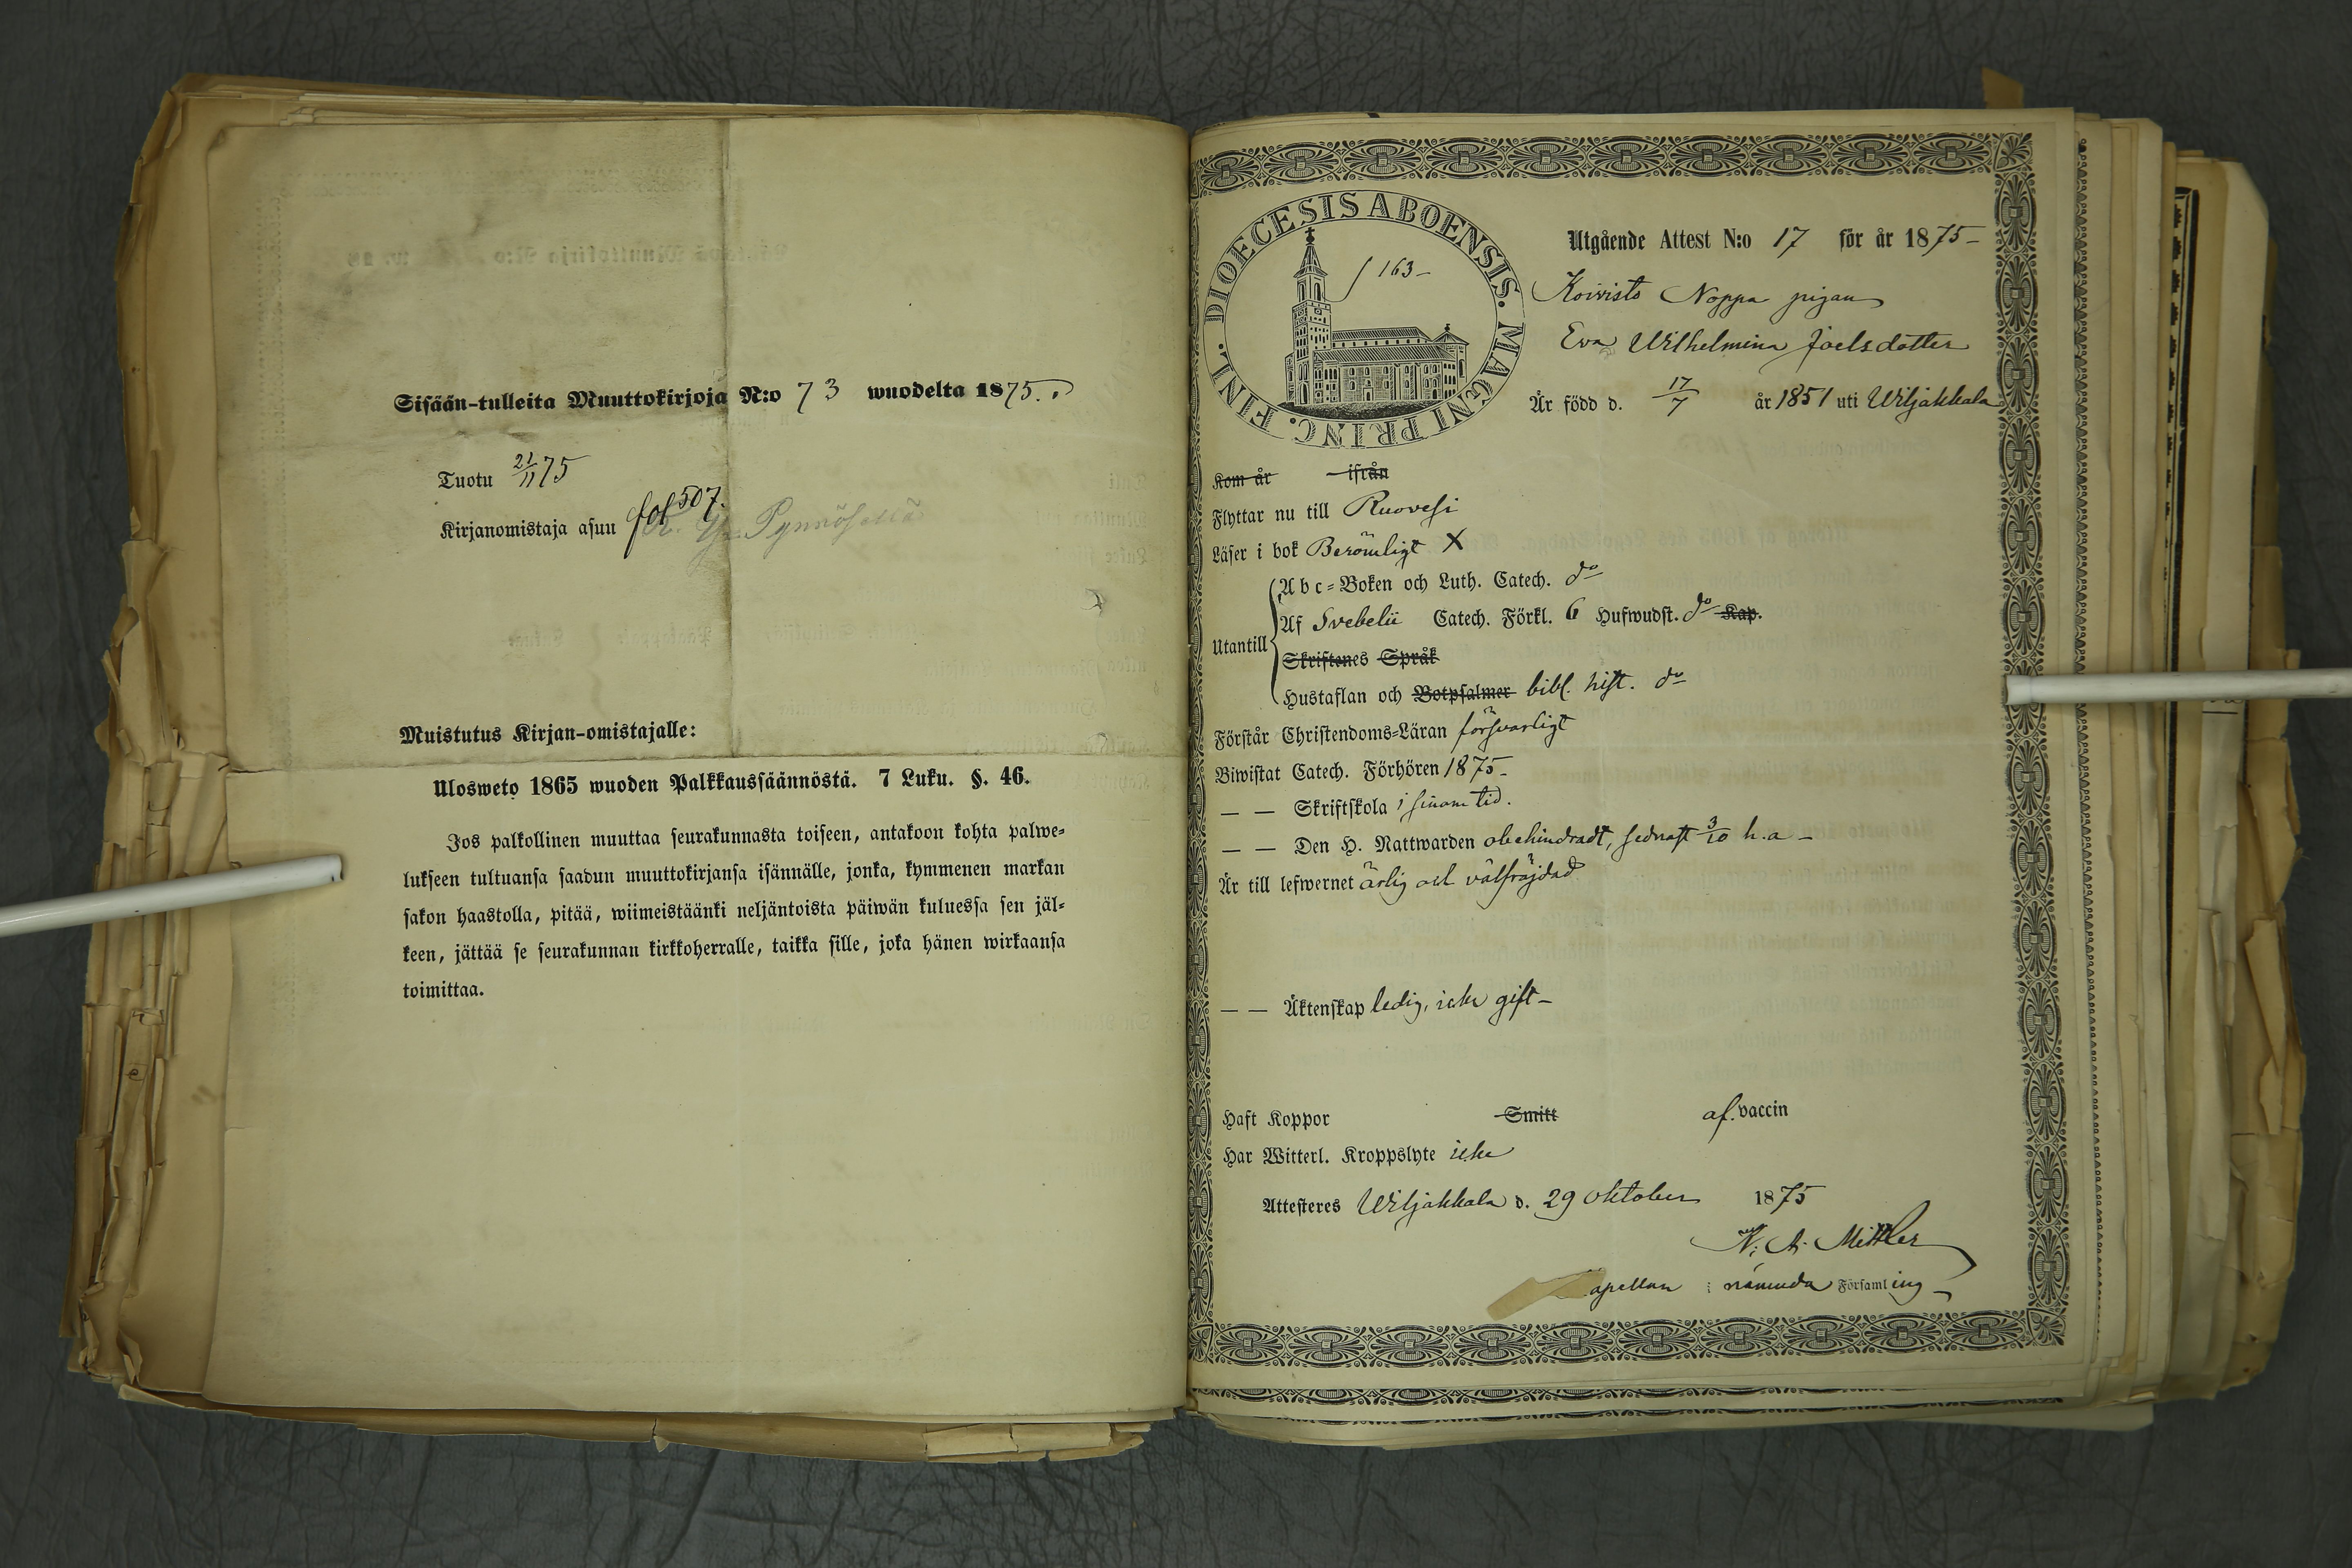 Sisään-tulleita Muuttokirjoja N:o 73 wuodelta 1875.
Tuotu 21/11 75
Kirjanomistaja asuu fol 507.
Muistutus Kirjan-omistajalle:
Ulosweto 1865 wuoden Palkkaussäännöstä. 7 Luku. §. 46.
Jos palkollinen muuttaa seurakunnasta toiseen, antakoon kohta palwe-
lukseen tultuansa saadun muuttokirjansa isännälle, jonka, kymmenen markan
sakon haastolla, pitää, wiimeistäänki neljäntoista päiwän kuluessa sen jäl-
keen, jättää se seurakunnan kirkkoherralle, taikka sille, joka hänen wirkaansa
toimittaa.
DIOECESIS ABOENSIS. MAGNI PRINC. FINL.
f 163-
Utgående Attest N:o 17 för år 1875-
Koivisto Noppa pigan
Eva Wilhelmina Joelsdotter
Är född d. 17/7 år 1851 uti Wiljakkala
Kom år ifrån
Flyttar nu till Ruovesi
Läser i bok Berömligt X
Utantill
Abc-Boken och Luth. Catech. do
Af Svebelii Catech. Förkl. 6 Hufwudst. do Kap.
Skriftenes Språk
Hustaflan och Botpsalmer bibl. hist. do
Förstår Christendoms-Läran försvarligt
Biwistat Catech. Förhören 1875-
— — Skriftskola i sinom tid.
— — Den H. Nattwarden obehindradt, sednast 3/10 h.a -
Är till lefwernet ärlig och välfräjdad
— — Äktenskap ledig, icke gift -
Haft Koppor Smitt af. vaccin
Har Witterl. Kroppslyte icke
Attesteres Wiljakkala d. 29 Oktober 1875
K. A. Mittler
apellan i nämnda Församling -